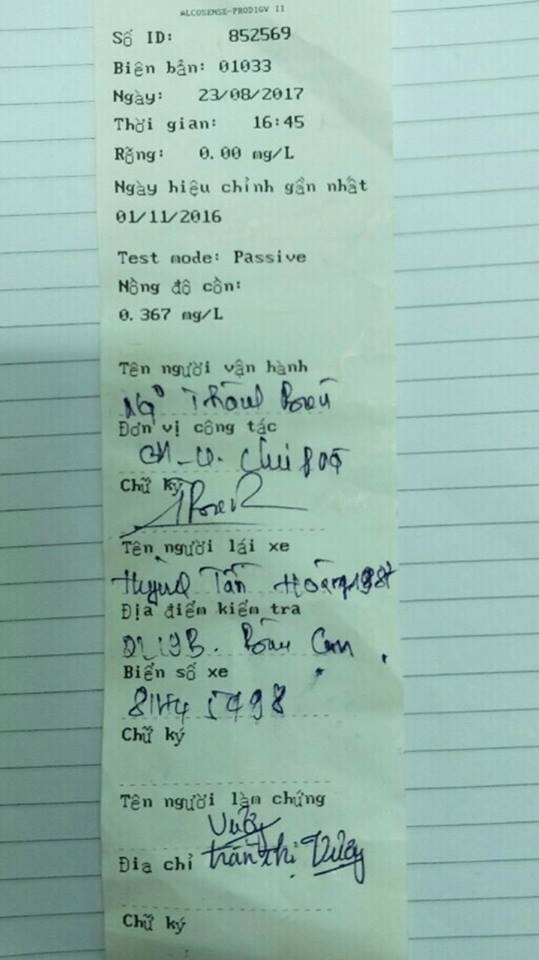 ALCOSENSE-PRODIGY II
Số ID: 852569
Biên bản: 01033
Ngày: 23/08/2017
Thời gian: 16:45
Rỗng: 0.00 mg/L
Ngày hiệu chỉnh gần nhất
01/11/2016
Test mode: Passive
Nồng độ cồn:
0.367 mg/L
Tên người vận hành
Ngô
Đơn vị công tác
Chữ ký
Tên người lái xe
Huỳnh Tấn Hoàng 1987
Địa điểm kiểm tra
QL19B.
Biển số xe
81H4 5498
Chữ ký
Tên người làm chứng
Địa chỉ Trần Thị
Chữ ký